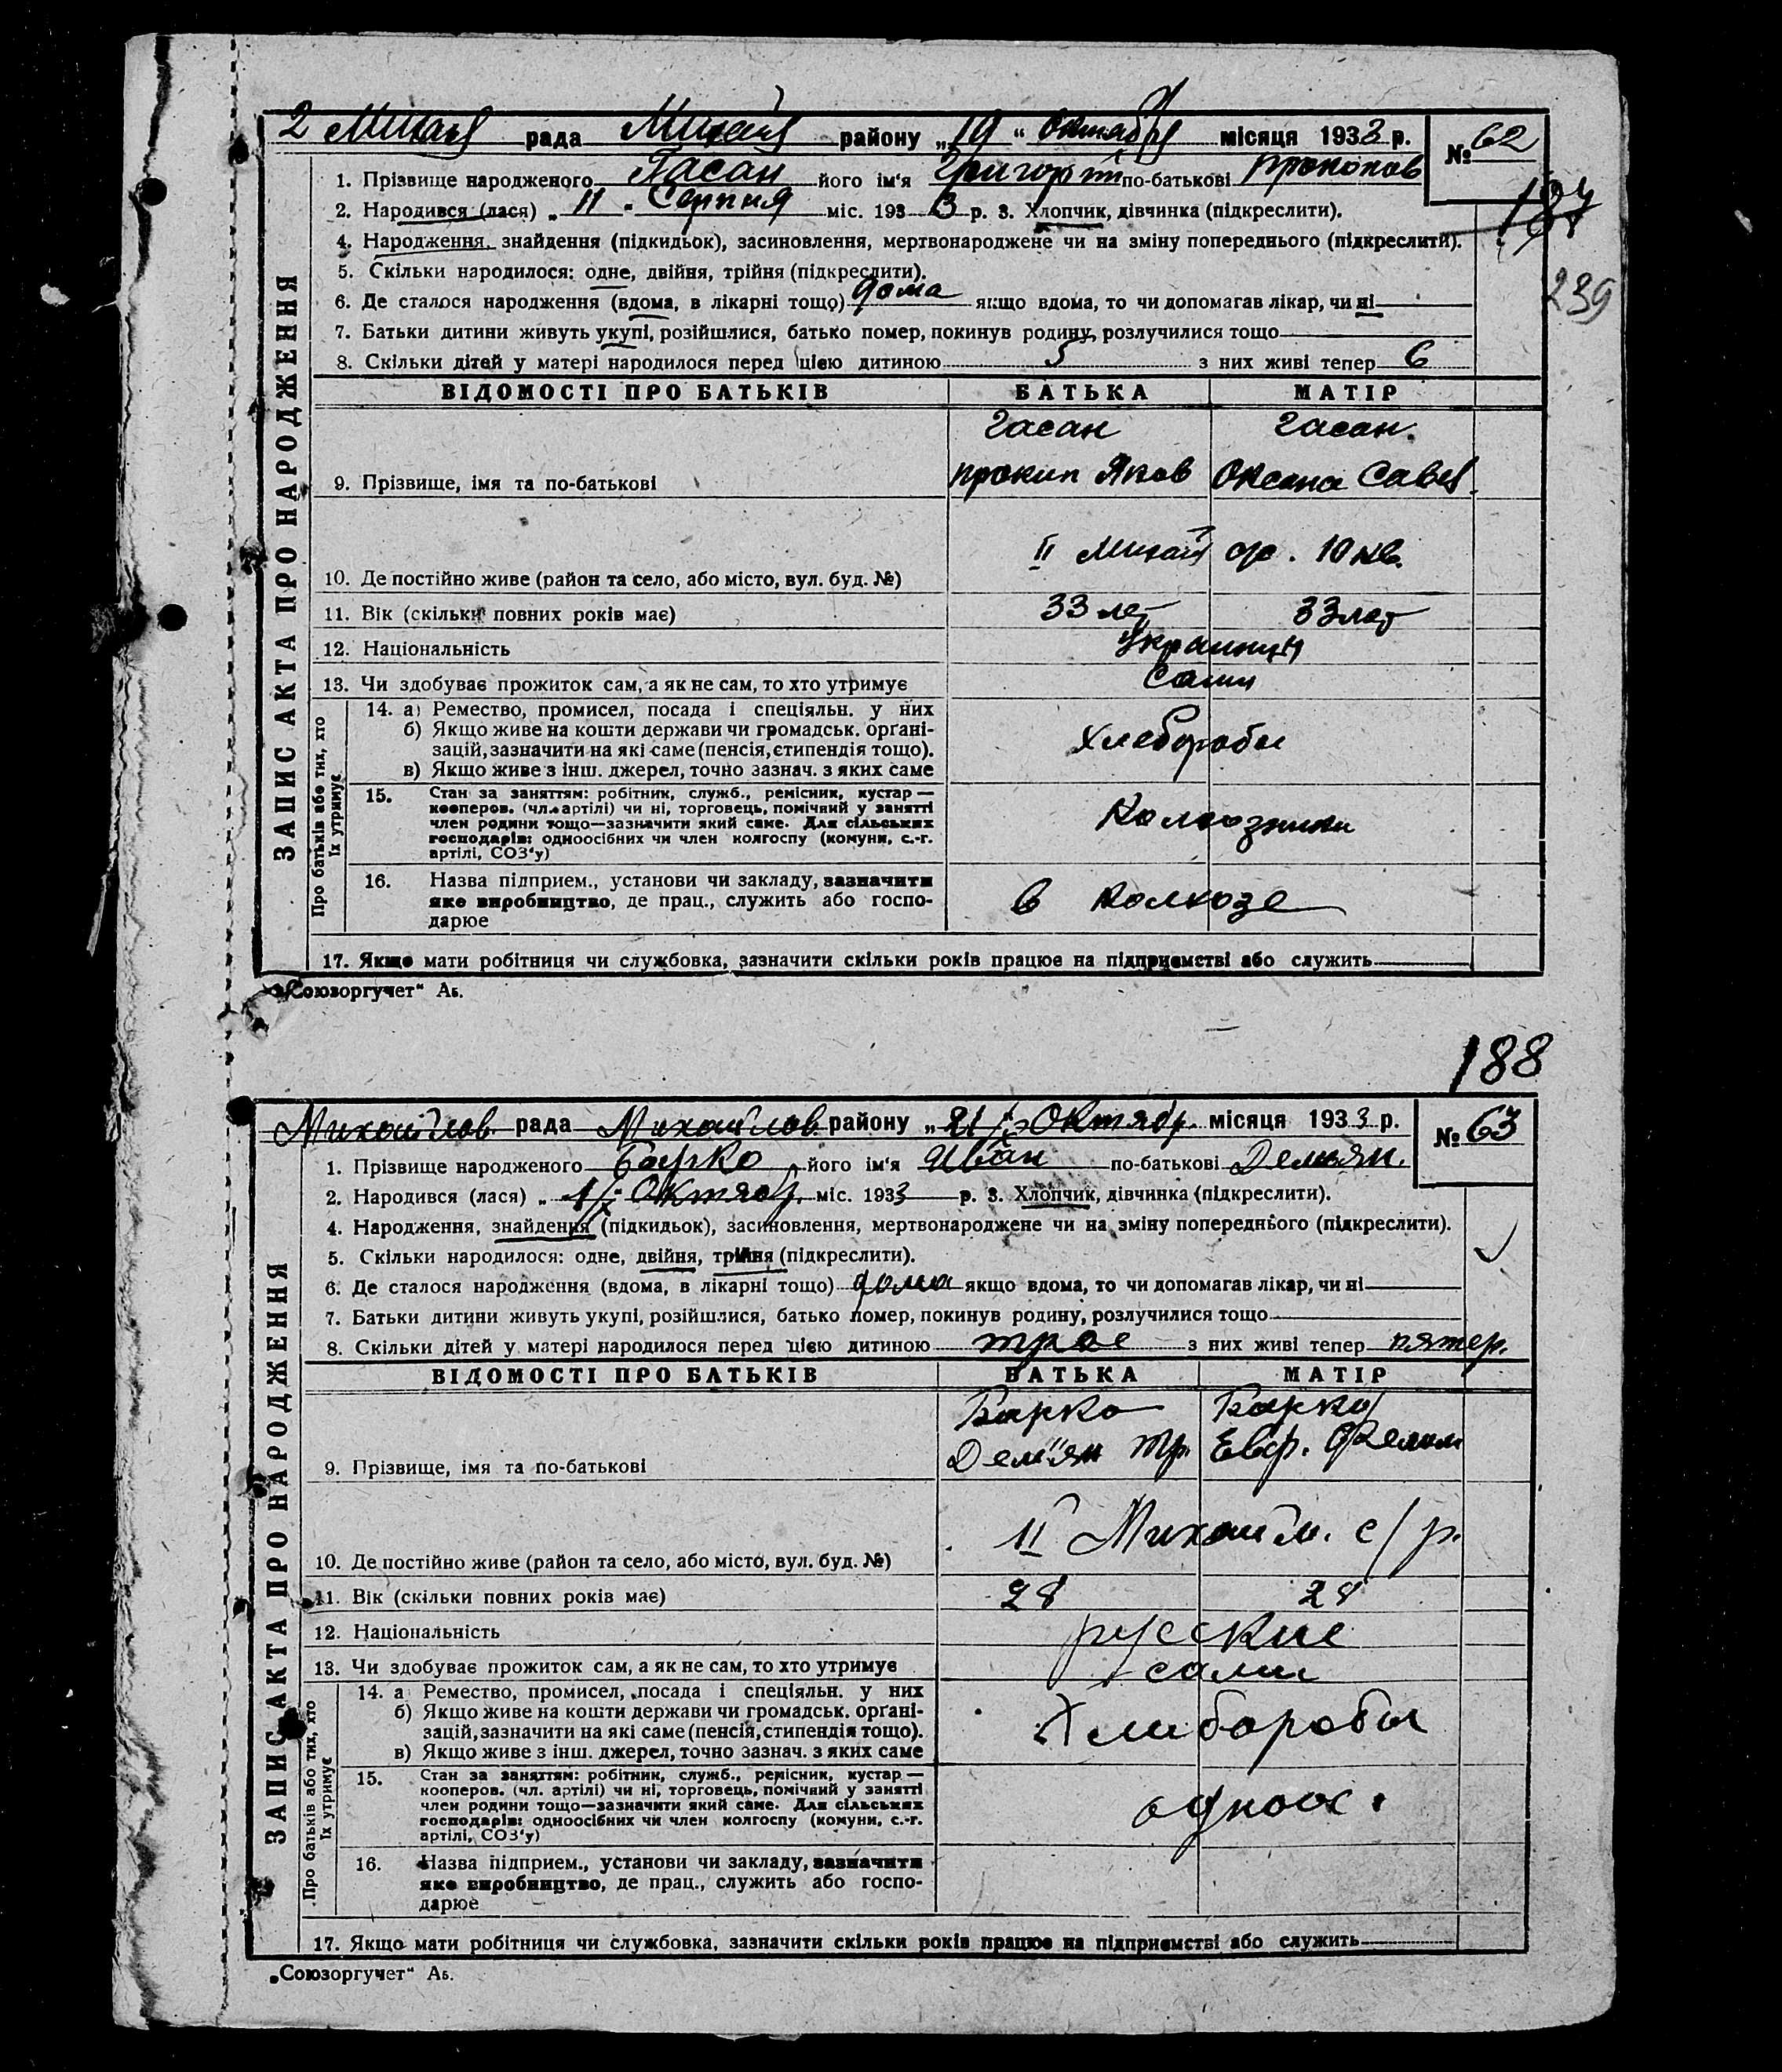 2 Михай рада Михай району „19“ Октября місяця 1933 р. № 62
1. Прізвище народженого Гасан його ім‘я Григорій по-батькові Прокопов
187
2. Народився (лася) „11“ Серпня міс. 1933 р. 3. Хлопчик, дівчинка (підкреслити).
4. Народження, знайдення (підкидьок), засиновлення, мертвонароджене чи на зміну попереднього (підкреслити).
5. Скільки народилося: одне, двійня, трійня (підкреслити).
6. Де сталося народження (вдома, в лікарні тощо) дома якщо вдома, то чи допомагав лікар, чи ні
239
7. Батьки дитини живуть укупі, розійшлися, батько помер, покинув родину, розлучилися тощо
8. Скільки дітей у матері народилося перед цією дитиною 5 з них живі тепер 6
ЗАПИС АКТА ПРО НАРОДЖЕННЯ
ВІДОМОСТІ ПРО БАТЬКІВ БАТЬКА МАТІР
Гасан Гасан.
9. Прізвище, імя та по-батькові Прокип Яков Оксана Савев.
II Михай 10 кв.
10. Де постійно живе (район та село, або місто, вул. буд. №)
11. Вік (скільки повних років має) 33 лет 33 лет
12. Національність Украинци
13. Чи здобуває прожиток сам, а як не сам, то хто утримує Сами
Про батьків або тих, хто їх утримує
14. а) Ремество, промисел, посада і спеціяльн. у них
б) Якщо живе на кошти держави чи громадськ. орґані-
зацій, зазначити на які саме (пенсія, стипендія тощо). Хлеборобы
в) Якщо живе з інш. джерел, точно зазнач. з яких саме
15. Стан за заняттям: робітник, служб., ремісник, кустар —
кооперов. (чл. артілі) чи ні, торговець, помічний у занятті
член родини тощо—зазначити який саме. Для сільських Колхозники
господарів: одноосібних чи член колгоспу (комуни, с.-г.
артілі, СОЗ‘у)
16. Назва підприєм., установи чи закладу, зазначити
яке виробництво, де прац., служить або госпо- в колхозе
дарює
17. Якщо мати робітниця чи службовка, зазначити скільки років працює на підприємстві або служить
„Союзоргучет“ Аб.
188
Михайлов рада Михайлов району „21/X Октябр. місяця 1933 р. № 63
1. Прізвище народженого Барко його ім‘я Иван по-батькові Демьян.
2. Народився (лася) „1/X Октябр міс. 1933 р. 3. Хлопчик, дівчинка (підкреслити).
4. Народження, знайдення (підкидьок), засиновлення, мертвонароджене чи на зміну попереднього (підкреслити).
5. Скільки народилося: одне, двійня, трійня (підкреслити).
6. Де сталося народження (вдома, в лікарні тощо) дома якщо вдома, то чи допомагав лікар, чи ні
7. Батьки дитини живуть укупі, розійшлися, батько помер, покинув родину, розлучилися тощо
8. Скільки дітей у матері народилося перед цією дитиною трое з них живі тепер пятер.
ЗАПИС АКТА ПРО НАРОДЖЕННЯ
ВІДОМОСТІ ПРО БАТЬКІВ БАТЬКА МАТІР
Барко Барко
9. Прізвище, імя та по-батькові Дем"ян Тр. Евф.
II Михайл. с/р.
10. Де постійно живе (район та село, або місто, вул. буд. №)
11. Вік (скільки повних років має) 28 28
12. Національність русские
13. Чи здобуває прожиток сам, а як не сам, то хто утримує сами
Про батьків або тих, хто їх утримує
14. а Ремество, промисел, посада і спеціяльн. у них
б) Якщо живе на кошти держави чи громадськ. орґані- Хлиборобы
зацій, зазначити на які саме (пенсія, стипендія тощо).
в) Якщо живе з інш. джерел, точно зазнач. з яких саме
15. Стан за заняттям: робітник, служб., ремісник, кустар —
кооперов. (чл. артілі) чи ні, торговець, помічний у занятті
член родини тощо—зазначити який саме. Для сільських одноос.
господарів: одноосібних чи член колгоспу (комуни, с.-г.
артілі, СОЗ‘у)
16. Назва підприєм., установи чи закладу, зазначити
яке виробництво, де прац., служить або госпо-
дарює
17. Якщо мати робітниця чи службовка, зазначити скільки років працює на підприємстві або служить
„Союзоргучет“ Аб.